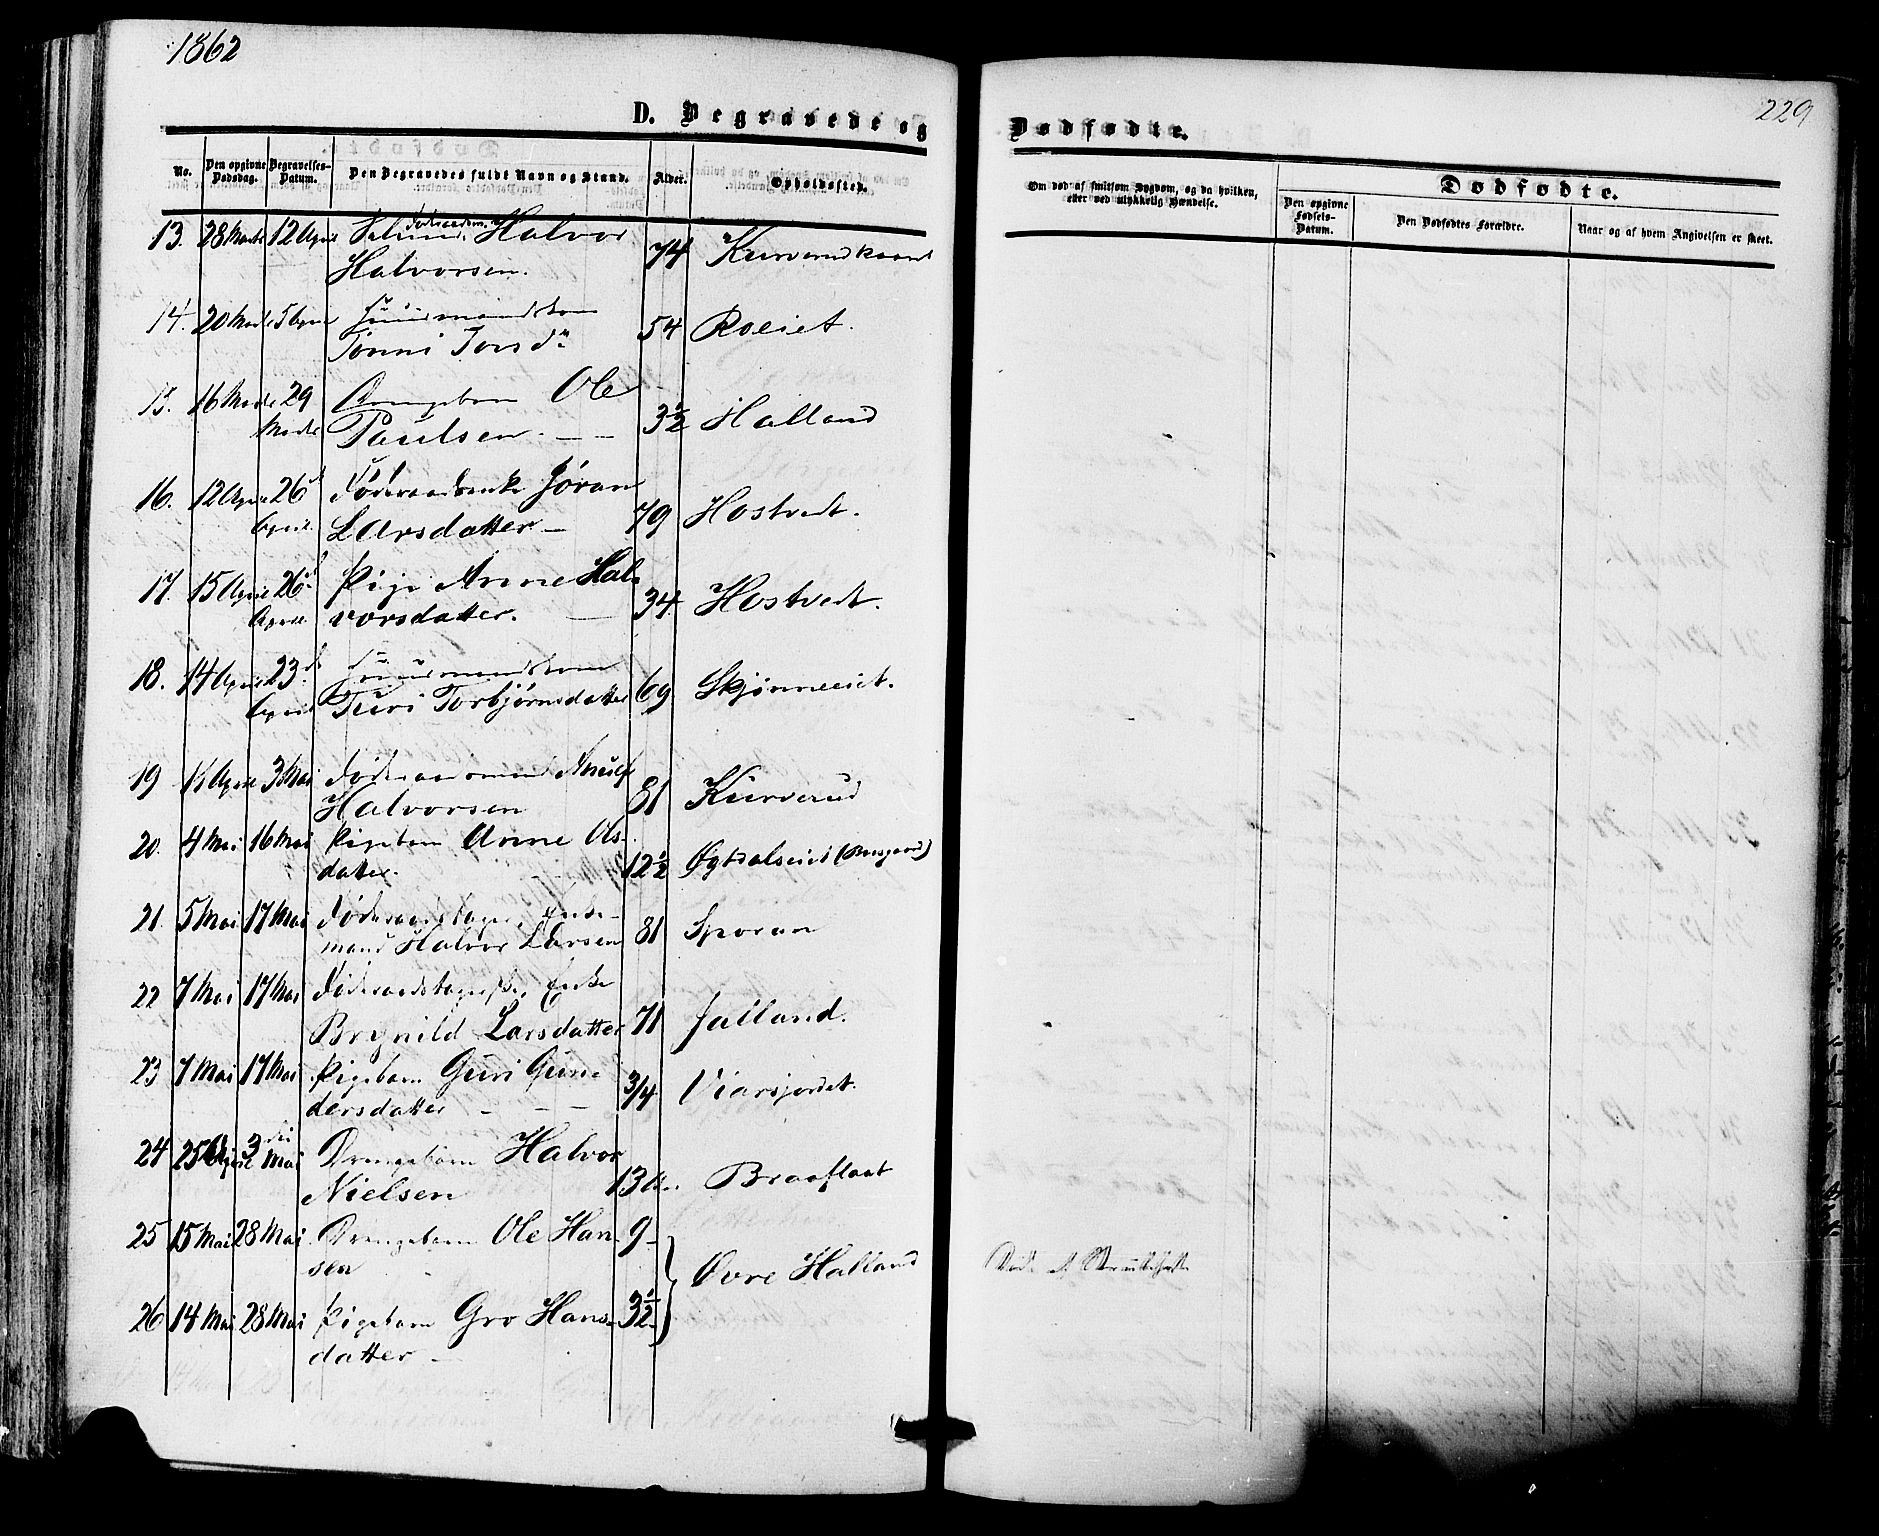 1862
229
D. Begravede og Dødfødte.
No. Den opgivne Dødsdag. Begravelses-Datum. Den Begravedes fulde Navn og Stand. Alder. Opholdssted.
Om død af smitsom Sygdom, og da hvilken, eller ved ulykkelig Hændelse.
Dødfødte.
Den opgivne Fødsels-Datum. Den Dødfødtes Forældre. Naar og af hvem Angivelsen er skeet.
13. 28 Marts 12 April Halvor
Halvorsen. 74
14. 20 Marts 5 April Huusmandskone
Tonni Torsdr 54 Roeiet.
15. 16 Marts 29 Drengebarn Ole
Marts Paulsen. 3½ Halland
16. 12 April 26d Føderaadsenke Jøran
April Larsdatter 79 Hostvedt.
17. 15 April 26d Pige Anne Hal-
April vorsdatter. 34 Hostvedt.
18. 14 April 23d Huusmandskone
April Turi Torbjørnsdatter 69 Skjønneeiet.
19 April 3 Mai Føderaadsmand
Halvorsen 81 Kurverud
20. 4 Mai 16 Mai Pigebarn Anne Ols-
datter. 12½
21. 5 Mai 17 Mai Føderaadstager, Enke-
mand Halvor Larsen 81 Sporan
22 7 Mai 17 Mai Enke
Brynild Larsdatter 71 Jalland.
23 7 Mai 17 Mai Pigebarn Guri Gun-
dersdatter 3/4 Viersjordet.
24 25 April 3die Mai Drengebarn Halvor
Nielsen 13 d. Braaflaat
25 15 Mai 28 Mai Drengebarn Ole Han- 9
sen Øvre Halland Død af Strubehoste
26 14 Mai 28 Mai Pigebarn Gro Hans- 3½
datter